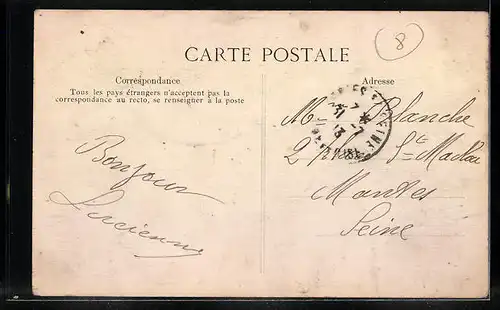 8
CARTE POSTALE
Correspondance
Tous les pays étrangers n'acceptent pas la
correspondance au recto, se renseigner à la poste
Adresse
Bonjour
Lucienne
Blanche
2 Ste Maclou
Mantes
Seine